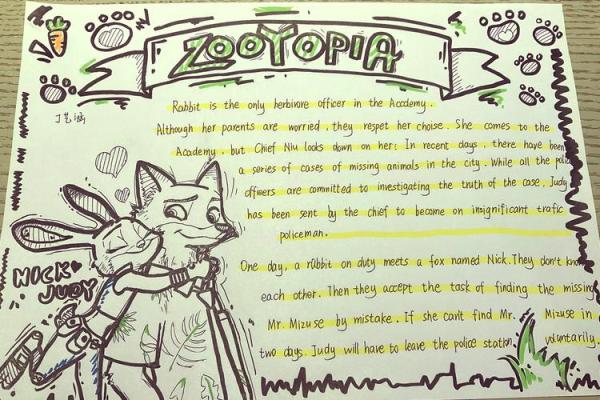 ZOOTOPIA
Rabbit is the only herbivore officer in the Academy.
Although her parents are worried, they respet her choise. She comes to the
Academy, but Chief Niu looks down on her: In recent days, there have been
a series of cases of missing animals in the city. While all the pol
officers are committed to investigating the truth of the case, Judy
has been sent by the chief to become on insignificant trafic
policeman.
NICK
JUDY
One day, a rabbit on duty meets a fox named Nick. They don't kno
each other. Then they accept the task of finding the missing
Mr. Mizuse by mistake. If she can't find Mr. Mizuse in
two days. Judy will have to leave the police station voluntarily.